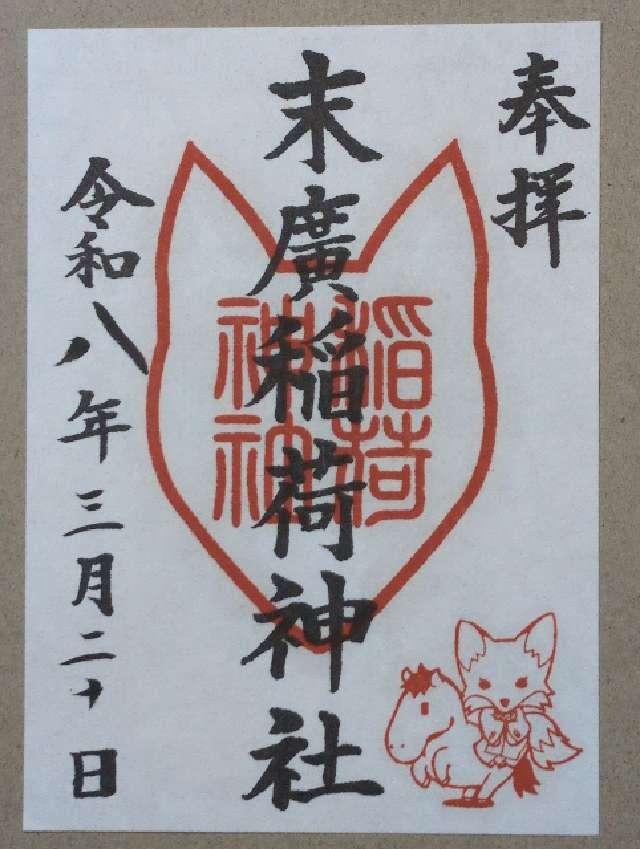 奉拝
末廣稲荷神社
稲荷
神社
令和八年三月二十日